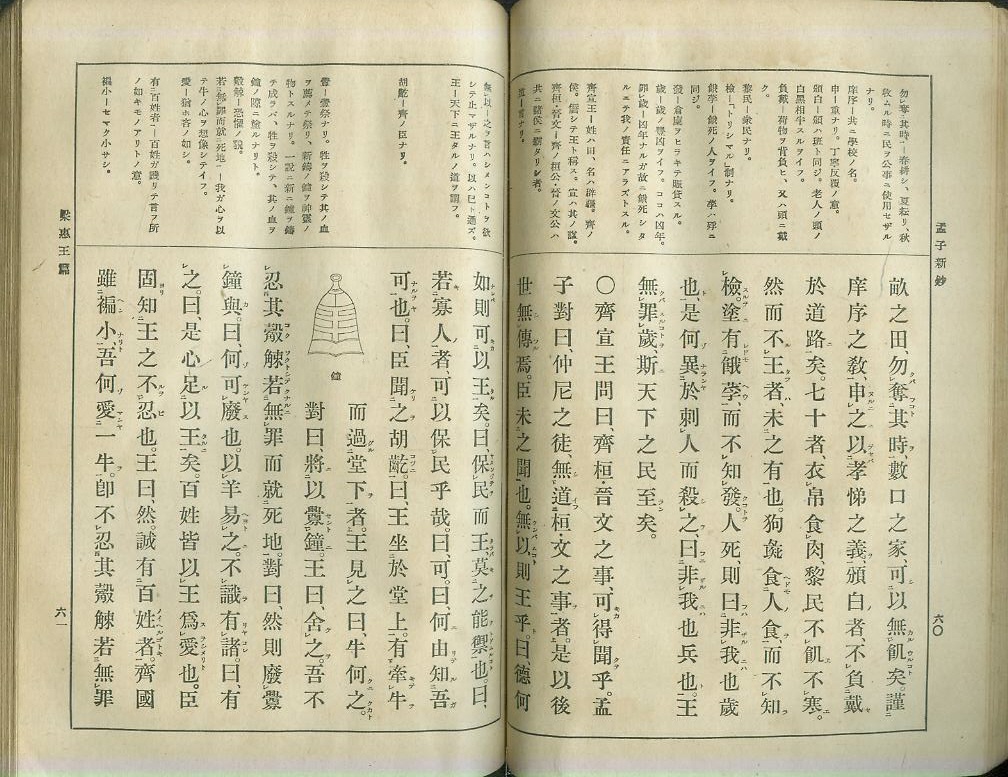 孟子新鈔
六〇
勿奪其時―春耕シ、夏耘リ、秋
收ムル時ニ民ヲ公事ニ使用セザル
ナリ。
庠序―共ニ學校ノ名。
申―重ナリ。丁寧反覆ノ意。
頒白―頒ハ班ト同ジ。老人ノ頭ノ
白黑相半スルヲイフ。
負戴―荷物ヲ背負ヒ、又ハ頭ニ戴
ク。
黎民―衆民ナリ。
檢―「トリシマル」制ナリ。
餓莩―餓死ノ人ヲイフ。莩ハ殍ニ
同ジ。
發―倉廩ヲヒラキテ賑貸スル。
歲―歲ノ豐凶ヲイフ。ココハ凶年。
罪歲―凶年ナルガ故ニ餓死シタ
ルニテ我ノ責任ニアラズトスル。
齊宣王―姓ハ田、名ハ辟疆。齊ノ
侯。僭シテ王ト稱ス。宣ハ其ノ諡。
齊桓・晉文―齊ノ桓公・晉ノ文公ハ
共ニ諸侯ニ覇タリシ者。
道―言ナリ。
畝之田、勿奪其時、數口之家、可以無飢矣。謹
庠序之敎、申之以孝悌之義、頒白者、不負戴
於道路矣。七十者、衣帛食肉、黎民不飢不寒。
然而不王者、未之有也。狗彘食人食、而不知
檢。塗有餓莩、而不知發。人死、則曰非我也歲
也、是何異於刺人而殺之、曰非我也兵也。王
無罪歲、斯天下之民至矣。
○齊宣王問曰、齊桓・晉文之事、可得聞乎。孟
子對曰、仲尼之徒、無道桓・文之事者。是以後
世無傳焉。臣未之聞也。無以、則王乎。曰、德何
無以―之ヲ言ハシメンコトヲ欲
シテ止マザルナリ。以ハ已ト通ズ。
王―天下ニ王タルノ道ヲ謂フ。
胡齕―齊ノ臣ナリ。
釁―釁祭ナリ。牲ヲ殺シテ其ノ血
ヲ薦メテ祭リ、新鑄ノ鐘ヲ神靈ノ
物トスルナリ。一說ニ新ニ鐘ヲ鑄
テ成ラバ、牲ヲ殺シテ、其ノ血ヲ
鐘ノ隙ニ塗ルナリト。
觳觫―恐懼ノ貌。
若無罪而就死地―我ガ心ヲ以
テ牛ノ心ヲ想像シテイフ。
愛―猶ホ吝ノ如シ。
有百姓者―百姓ガ譏リテ言フ所
ノ如キモノアリトノ意。
褊小―セマク小サシ。
如、則可以王矣。曰、保民而王、莫之能禦也。曰、
若寡人者、可以保民乎哉。曰、可。曰、何由知吾
可也。曰、臣聞之胡齕。曰、王坐於堂上。有牽牛
而過堂下者。王見之曰、牛何之。
鐘
對曰、將以釁鐘。王曰、舍之。吾不
忍其觳觫若無罪而就死地。對曰、然則廢釁
鐘與。曰、何可廢也。以羊易之。不識有諸。曰、有
之。曰、是心足以王矣。百姓皆以王爲愛也。臣
固知王之不忍也。王曰、然。誠有百姓者。齊國
雖褊小、吾何愛一牛。卽不忍其觳觫若無罪
梁惠王篇
六一